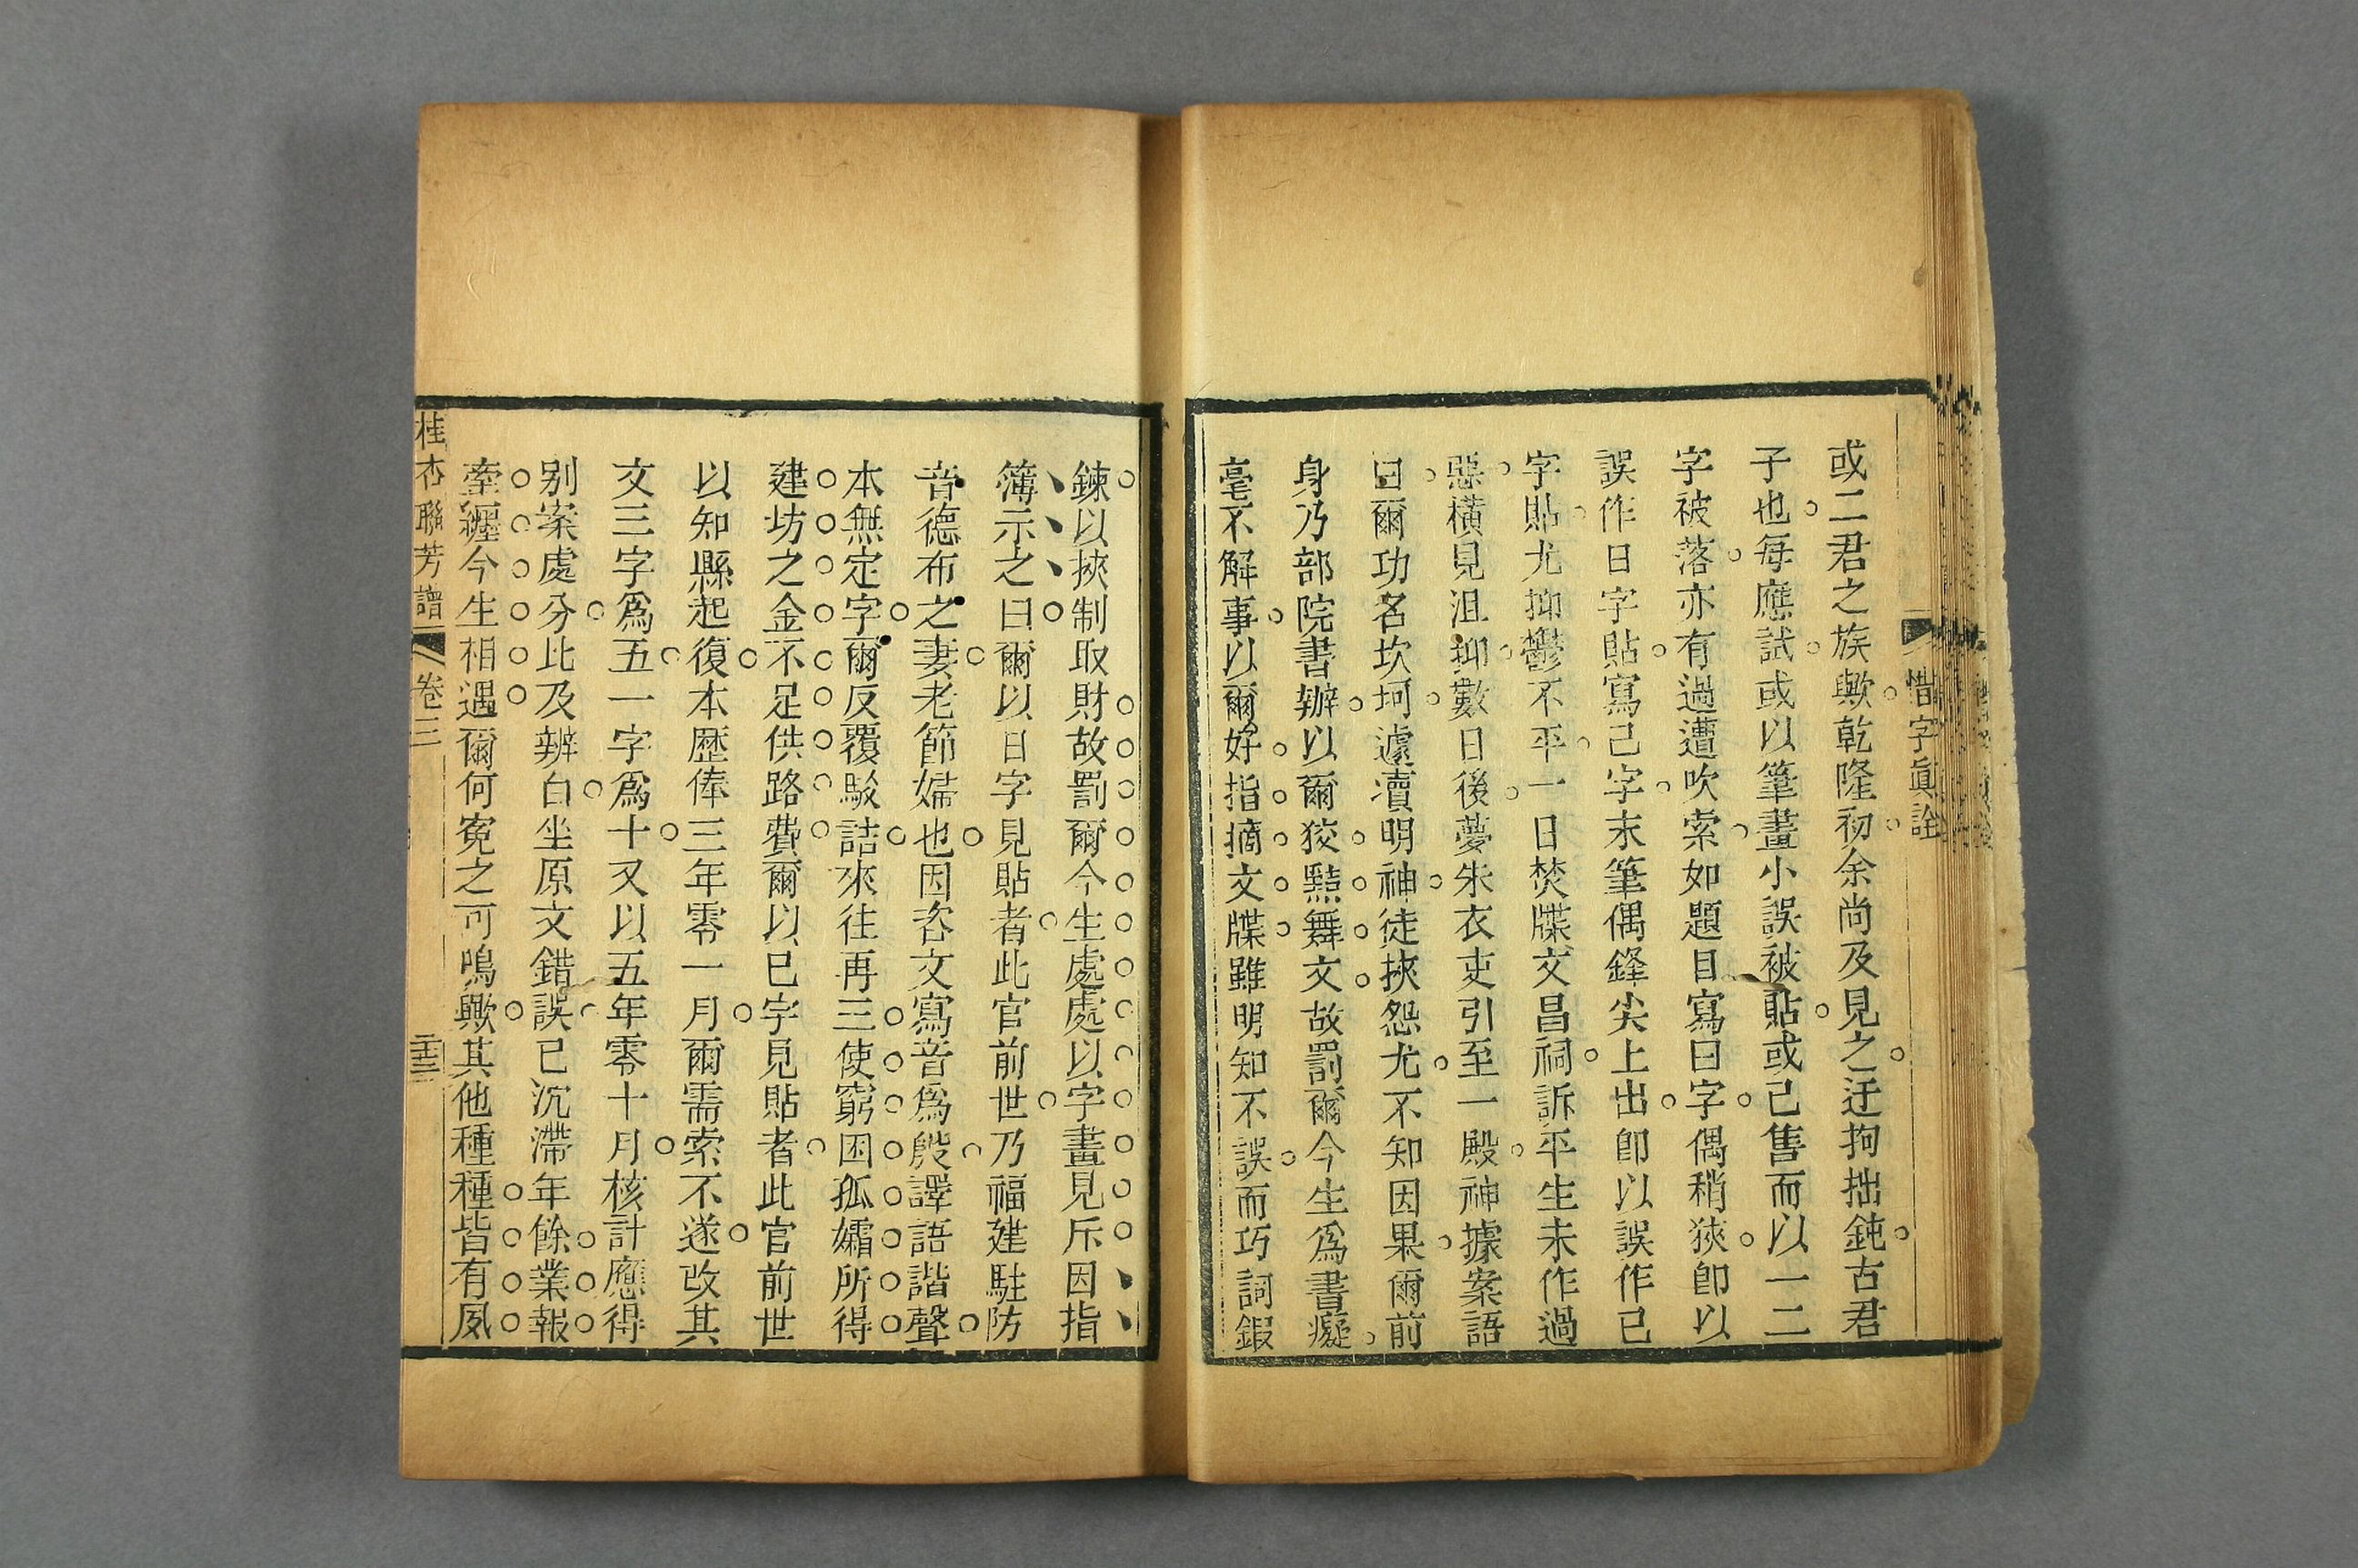 惜字眞詮
或二君之族歟乾隆初余尚及見之迂拘拙鈍古君
子也每應試或以筆畫小誤被貼或已售而以一二
字被落亦有過遭吹索如題目寫曰字偶稍狹卽以
誤作日字貼寫己字末筆偶鋒尖上出卽以誤作已
字貼尤抑鬱不平一日焚牒文昌祠訴平生未作過
惡橫見沮抑數日後夢朱衣吏引至一殿神據案語
曰爾功名坎坷遽瀆明神徒挾怨尤不知因果爾前
身乃部院書辦以爾狡黠舞文故罰爾今生爲書癡
毫不解事以爾好指摘文牒雖明知不誤而巧詞鍜
鍊以挾制取財故罰爾今生處處以字畫見斥因指
簿示之曰爾以日字見貼者此官前世乃福建駐防
音德布之妻老節婦也因咨文寫音爲殷譯語諧聲
本無定字爾反覆駁詰來往再三使窮困孤孀所得
建坊之金不足供路費爾以已字見貼者此官前世
以知縣起復本歷俸三年零一月爾需索不遂改其
文三字爲五一字爲十又以五年零十月核計應得
别案處分比及辦白坐原文錯誤已沉滯年餘業報
牽纏今生相遇爾何寃之可鳴歟其他種種皆有夙
桂杏聯芳譜
卷三